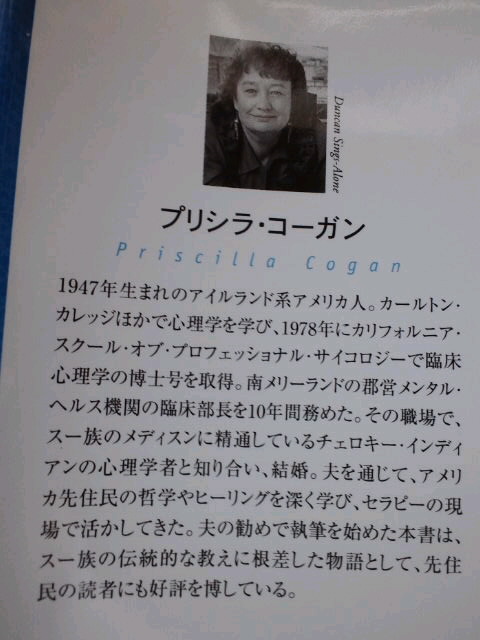 Duncan Sings-Alone
プリシラ・コーガン
Priscilla Cogan
1947年生まれのアイルランド系アメリカ人。カールトン・
カレッジほかで心理学を学び、1978年にカリフォルニア・
スクール・オブ・プロフェッショナル・サイコロジーで臨床
心理学の博士号を取得。南メリーランドの郡営メンタル・
ヘルス機関の臨床部長を10年間務めた。その職場で、
スー族のメディスンに精通しているチェロキー・インディ
アンの心理学者と知り合い、結婚。夫を通じて、アメリ
カ先住民の哲学やヒーリングを深く学び、セラピーの現
場で活かしてきた。夫の勧めで執筆を始めた本書は、
スー族の伝統的な教えに根差した物語として、先住
民の読者にも好評を博している。